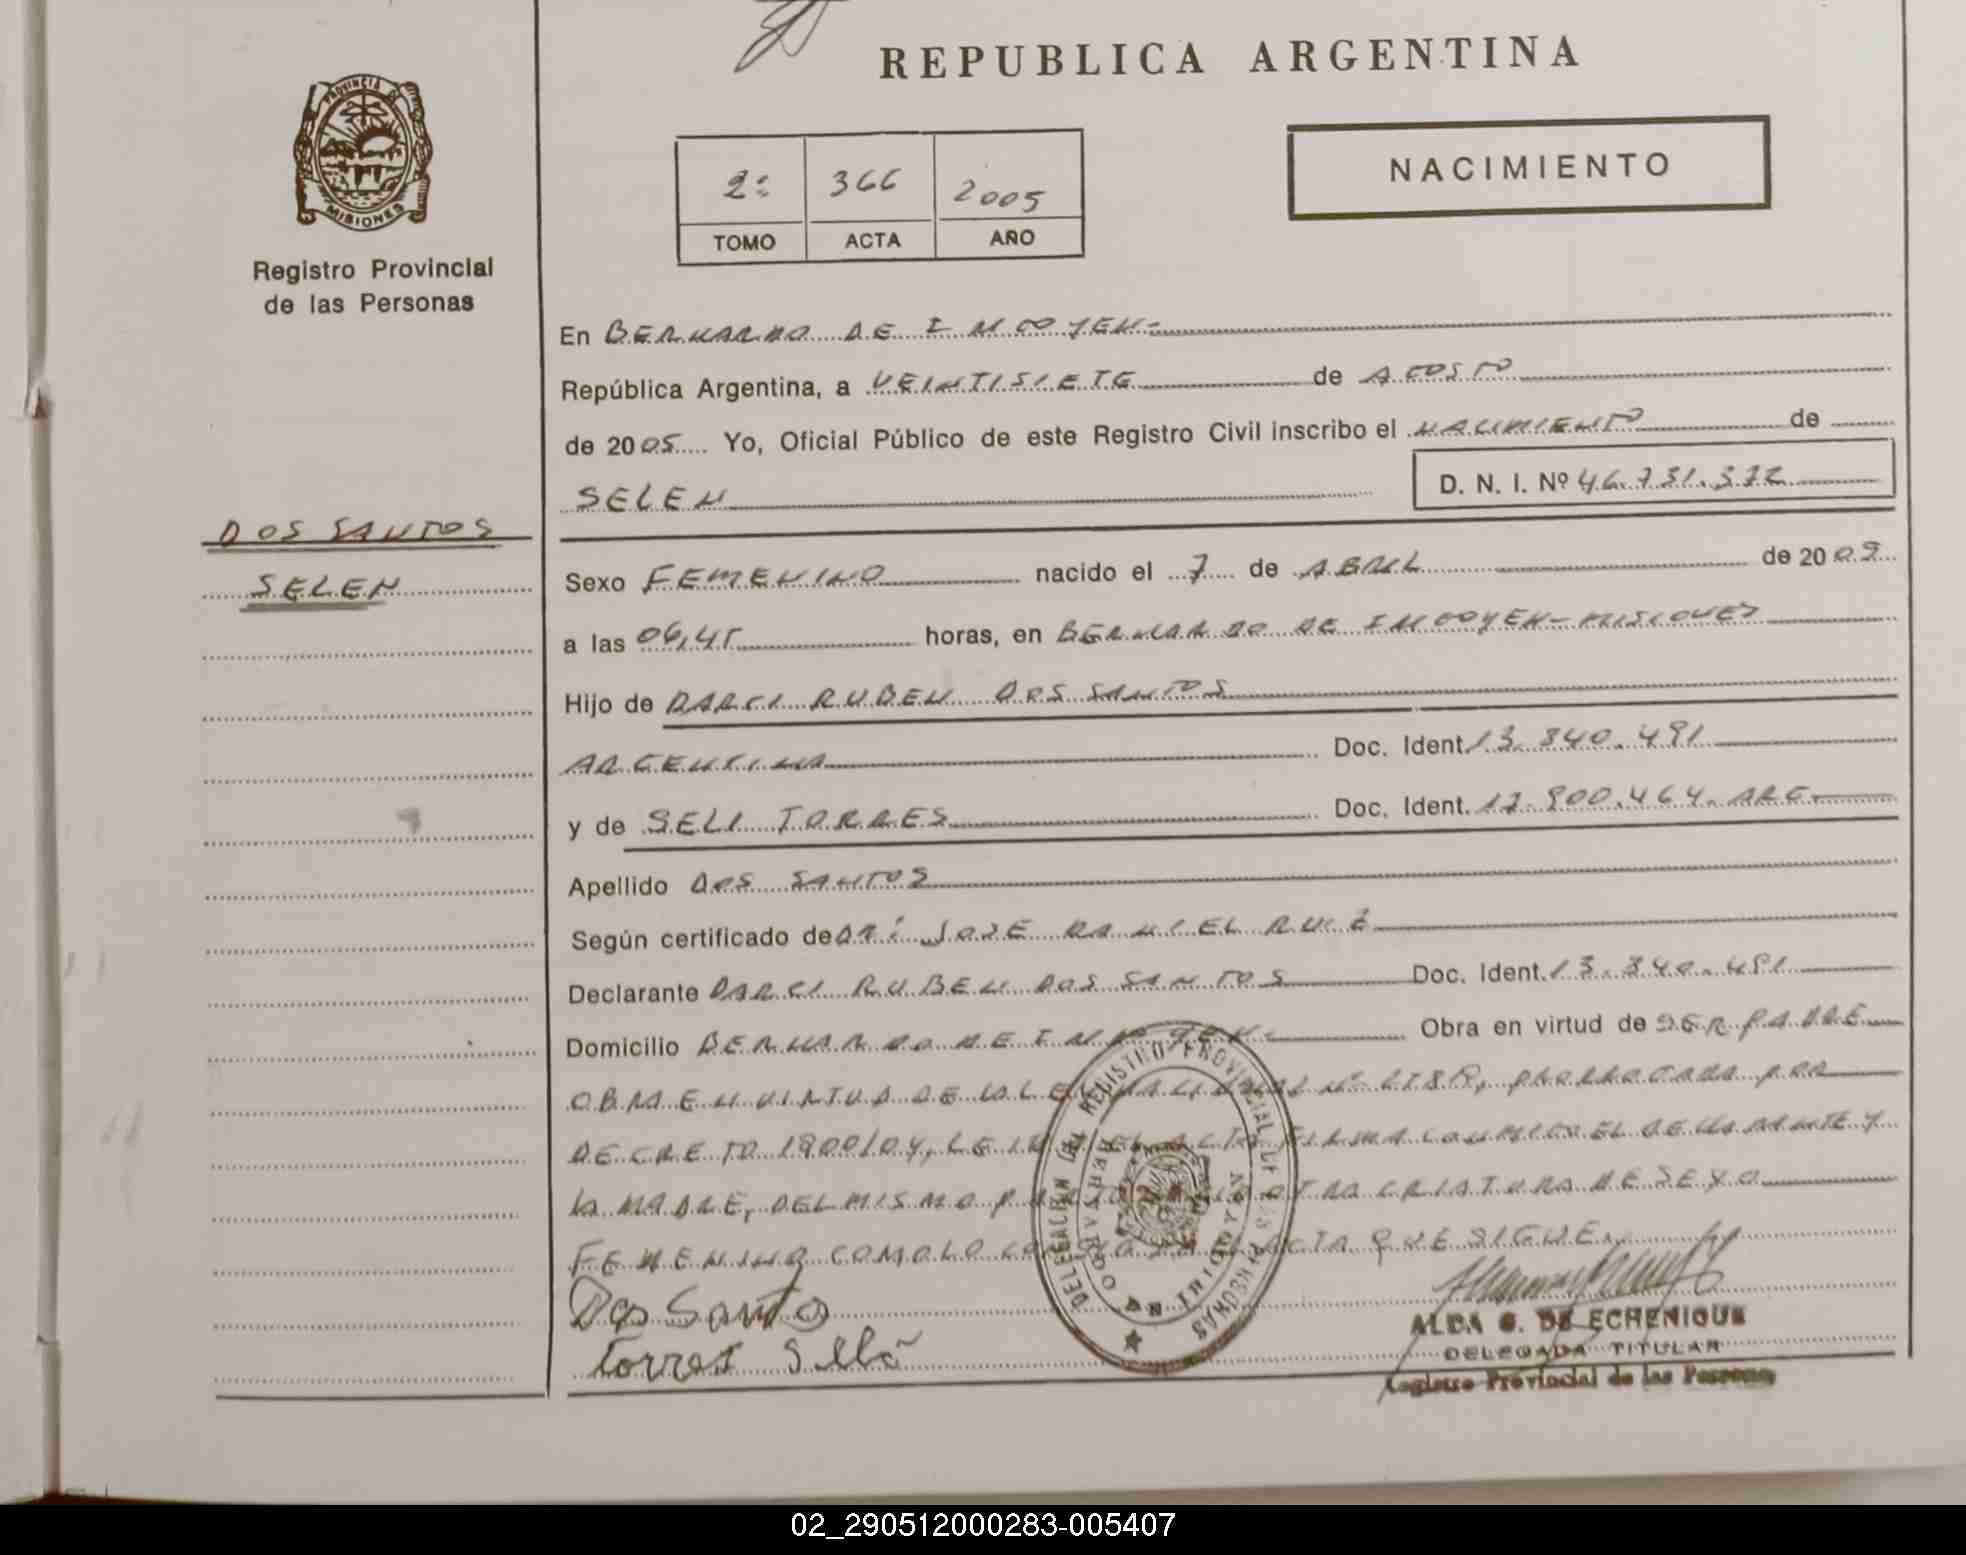 REPUBLICA ARGENTINA
PROVINCIA DE
MISIONES
Registro Provincial
de las Personas
2º 366 2005
TOMO ACTA AÑO
NACIMIENTO
En BERNARDO DE IRIGOYEN-
República Argentina, a VEINTISIETE de AGOSTO
de 2005 Yo, Oficial Público de este Registro Civil inscribo el NACIMIENTO de
SELEN D. N. I. Nº 46.731.372
DOS SANTOS
SELEN
Sexo FEMENINO nacido el 7 de ABRIL de 2005
a las 06,45 horas, en BERNARDO DE IRIGOYEN-MISIONES
Hijo de DARCI RUBEN DOS SANTOS
ARGENTINA Doc. Ident. 13.840.491
y de SELI TORRES Doc. Ident. 17.900.464. ARG.
Apellido DOS SANTOS
Según certificado de DR: JOSE DANIEL
Declarante DARCI RUBEN DOS SANTOS Doc. Ident. 13.840.491
Domicilio BERNARDO DE Obra en virtud de SER PADRE
OBRA EN VIRTUD DE LA LEY Nº PRORROGADA POR
DECRETO 1900/04, ACTA FIRMA CONMIGO EL DECLARANTE Y
LA MADRE, DEL MISMO OTRA CRIATURA DE SEXO
FEMENINO COMO LO ACTA QUE SIGUE.
Dos Santos
Torres Seli
DELEGACION DEL REGISTRO PROVINCIAL DE LAS PERSONAS
BERNARDO DE IRIGOYEN
ALBA G. DE ECHENIQUE
DELEGADA TITULAR
Registro Provincial de las Personas
02_290512000283-005407